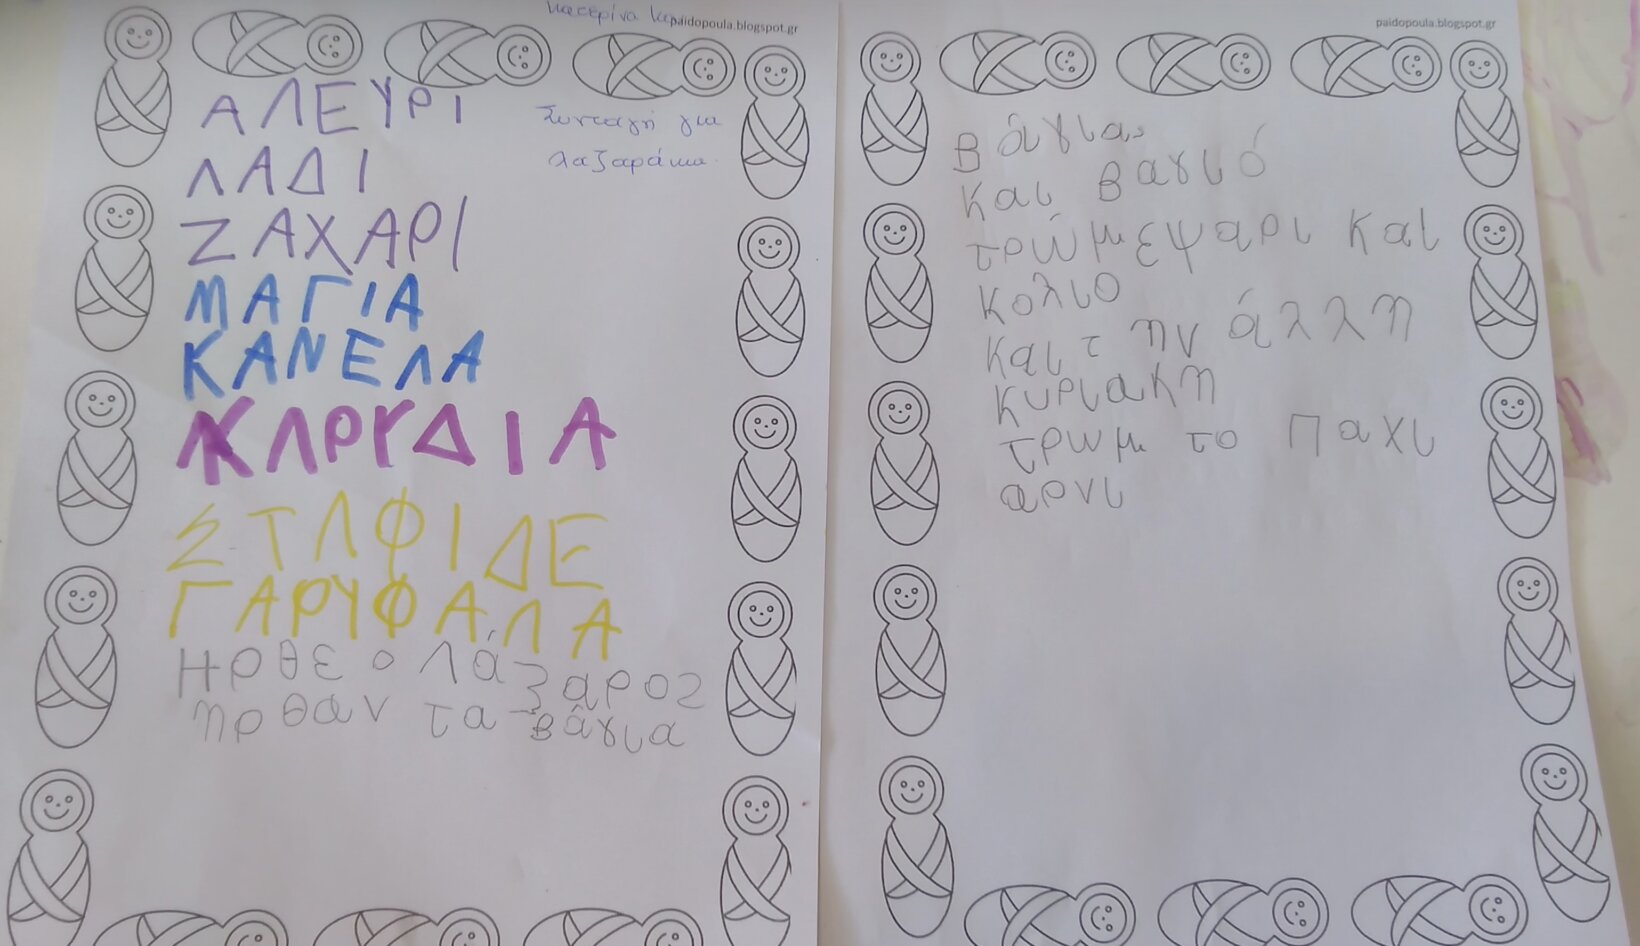 Κατερίνα
paidopoula.blogspot.gr
ΑΛΕΥΡΙ
Συνταγή για
λαζαράκια.
ΛΑΔΙ
ΖΑΧΑΡΙ
ΜΑΓΙΑ
ΚΑΝΕΛΑ
ΚΑΡΥΔΙΑ
ΣΤΑΦΙΔΕ
ΓΑΡΥΦΑΛΑ
Ηρθε ο Λάζαρος
ηρθαν τα βάγια
paidopoula.blogspot.gr
βάγια,
και βαγιό
τρώμεψαρι και
κολιο
και την άλλη
κυριακη
τρωμ το παχι
αρνι